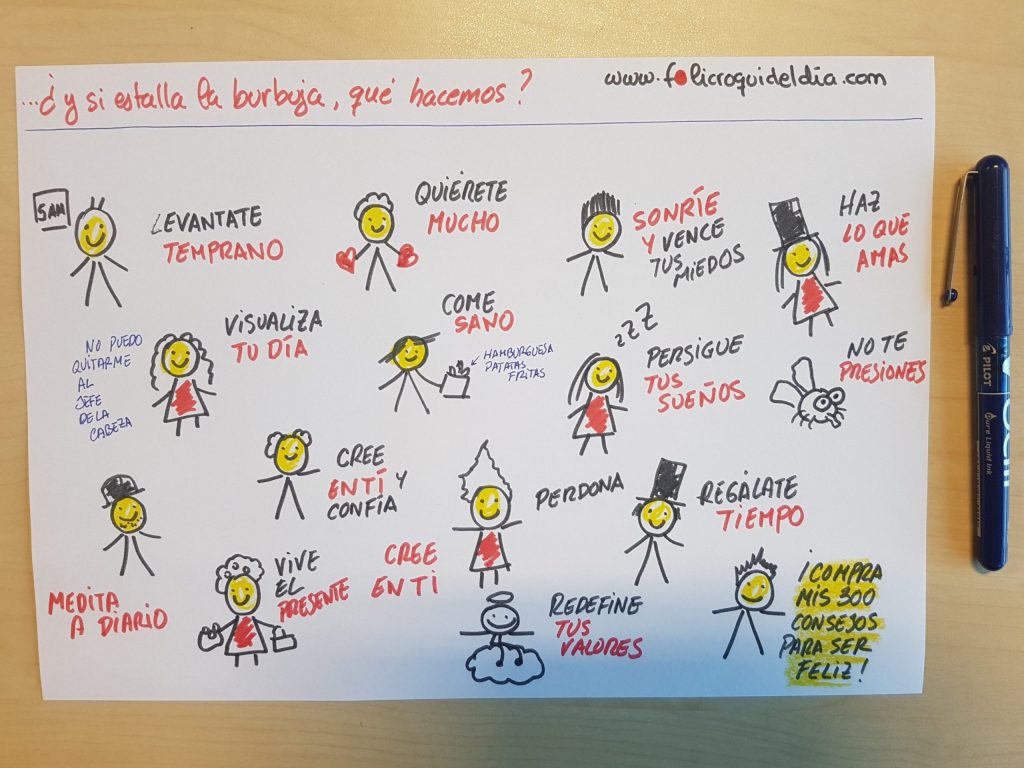 ...¿y si estalla la burbuja, qué hacemos?
www.folicroquideldía.com
5AM
LEVANTATE
TEMPRANO
QUIÉRETE
MUCHO
SONRÍE
Y VENCE
TUS
MIEDOS
HAZ
LO QUE
AMAS
NO PUEDO
QUITARME
AL
JEFE
DE LA
CABEZA
VISUALIZA
TU DÍA
COME
SANO
HAMBURGUESA
PATATAS
FRITAS
ZZZ
PERSIGUE
TUS
SUEÑOS
NO TE
PRESIONES
MEDITA
A DIARIO
CREE
EN TÍ Y
CONFÍA
PERDONA
REGÁLATE
TIEMPO
VIVE
EL
PRESENTE
CREE
EN TI
REDEFINE
TUS
VALORES
¡COMPRA
MIS 300
CONSEJOS
PARA SER
FELIZ!
PILOT
Pure Liquid Ink